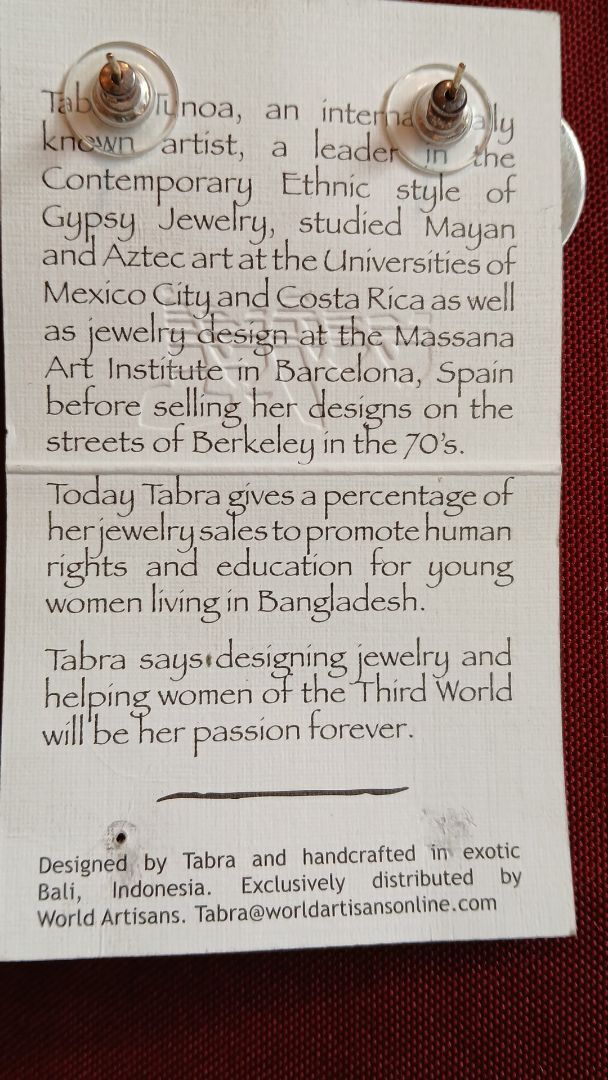 Tabra Tunoa, an internationally
known artist, a leader in the
Contemporary Ethnic style of
Gypsy Jewelry, studied Mayan
and Aztec art at the Universities of
Mexico City and Costa Rica as well
as jewelry design at the Massana
Art Institute in Barcelona, Spain
before selling her designs on the
streets of Berkeley in the 70's.
Today Tabra gives a percentage of
her jewelry sales to promote human
rights and education for young
women living in Bangladesh.
Tabra says designing jewelry and
helping women of the Third World
will be her passion forever.
Designed by Tabra and handcrafted in exotic
Bali, Indonesia. Exclusively distributed by
World Artisans. Tabra@worldartisansonline.com